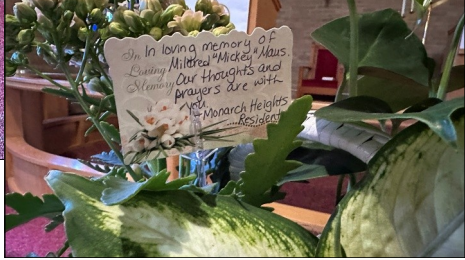 In loving memory of
Mildred "Mickey" Maus.
Our thoughts and
prayers are with
you.
-Monarch Heights
Residents
In
Loving
Memory